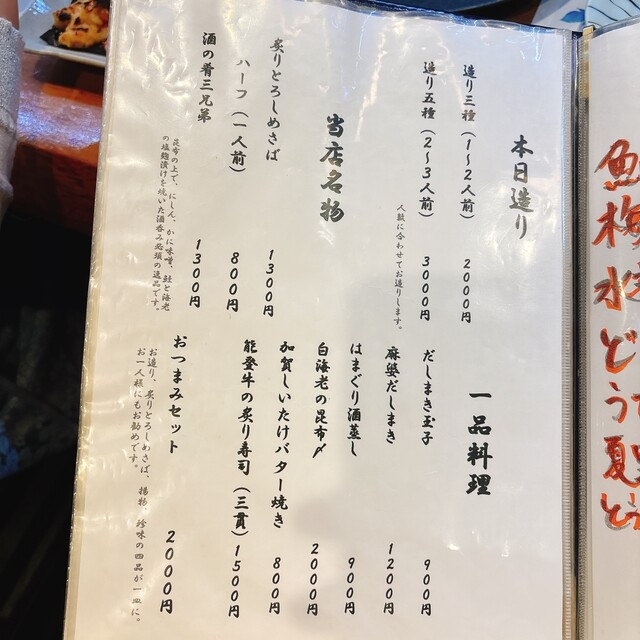 本日造り
造り三種（1〜2人前） 2000円
造り五種（2〜3人前） 3000円
人数に合わせてお造りします。
当店名物
炙りとろしめさば 1300円
ハーフ（一人前） 800円
酒の肴三兄弟 1300円
昆布の上で、にしん、かに味噌、鮭と海老
の塩麹漬けを焼いた酒呑み必須の逸品です。
一品料理
だしまき玉子 900円
麻婆だしまき 1200円
はまぐり酒蒸し 900円
白海老の昆布〆 2000円
加賀しいたけバター焼き 800円
能登牛の炙り寿司（三貫） 1500円
おつまみセット 2000円
お造り、炙りとろしめさば、揚物、珍味の四品が一皿に。
お一人様にもお勧めです。